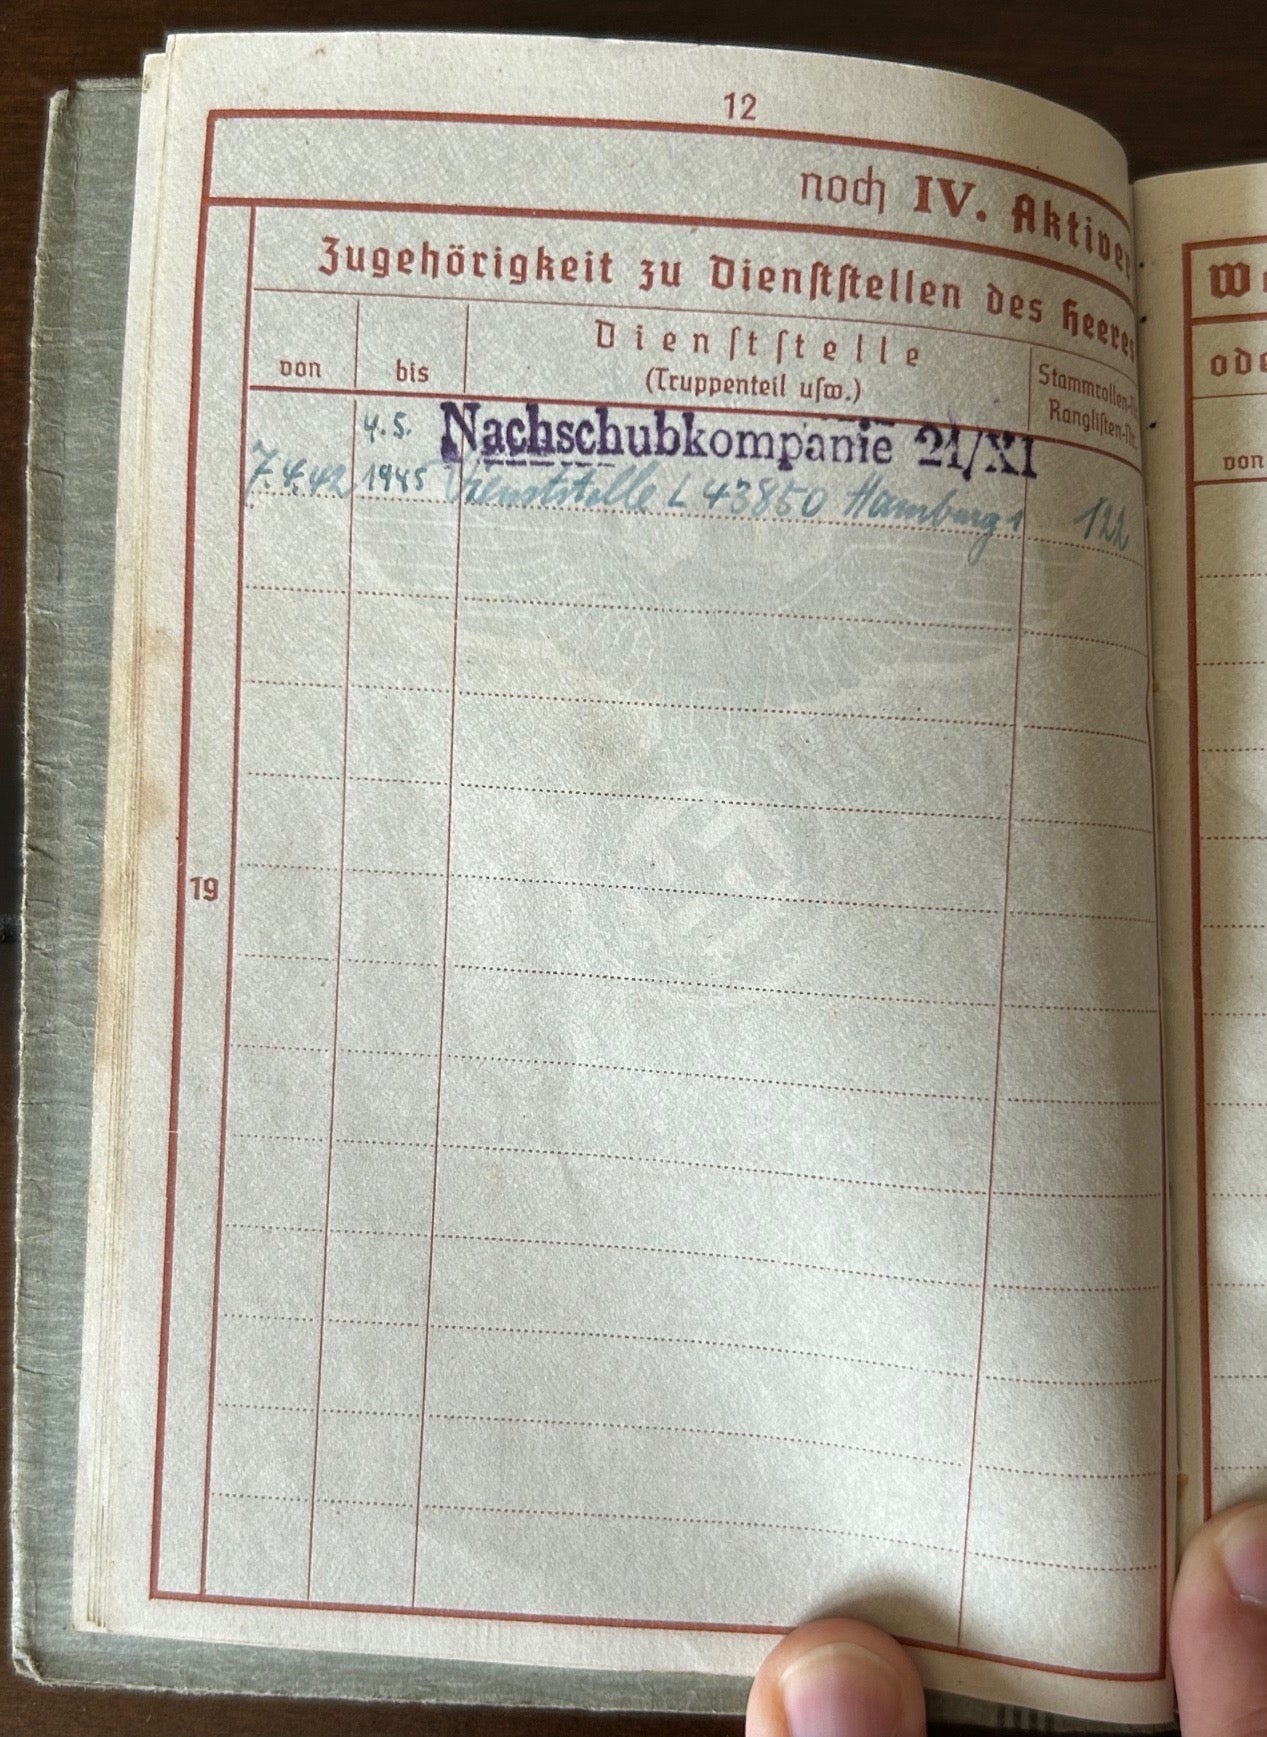 12
noch IV. Aktiver
Zugehörigkeit zu Dienststellen des Heeres
von
bis
Dienststelle
(Truppenteil usw.)
Stammrollen-
Ranglisten-Nr.
7.4.42
4.5.
1945
Nachschubkompanie 21/XI
Dienststelle L 43850 Hamburg 1
122
19
von